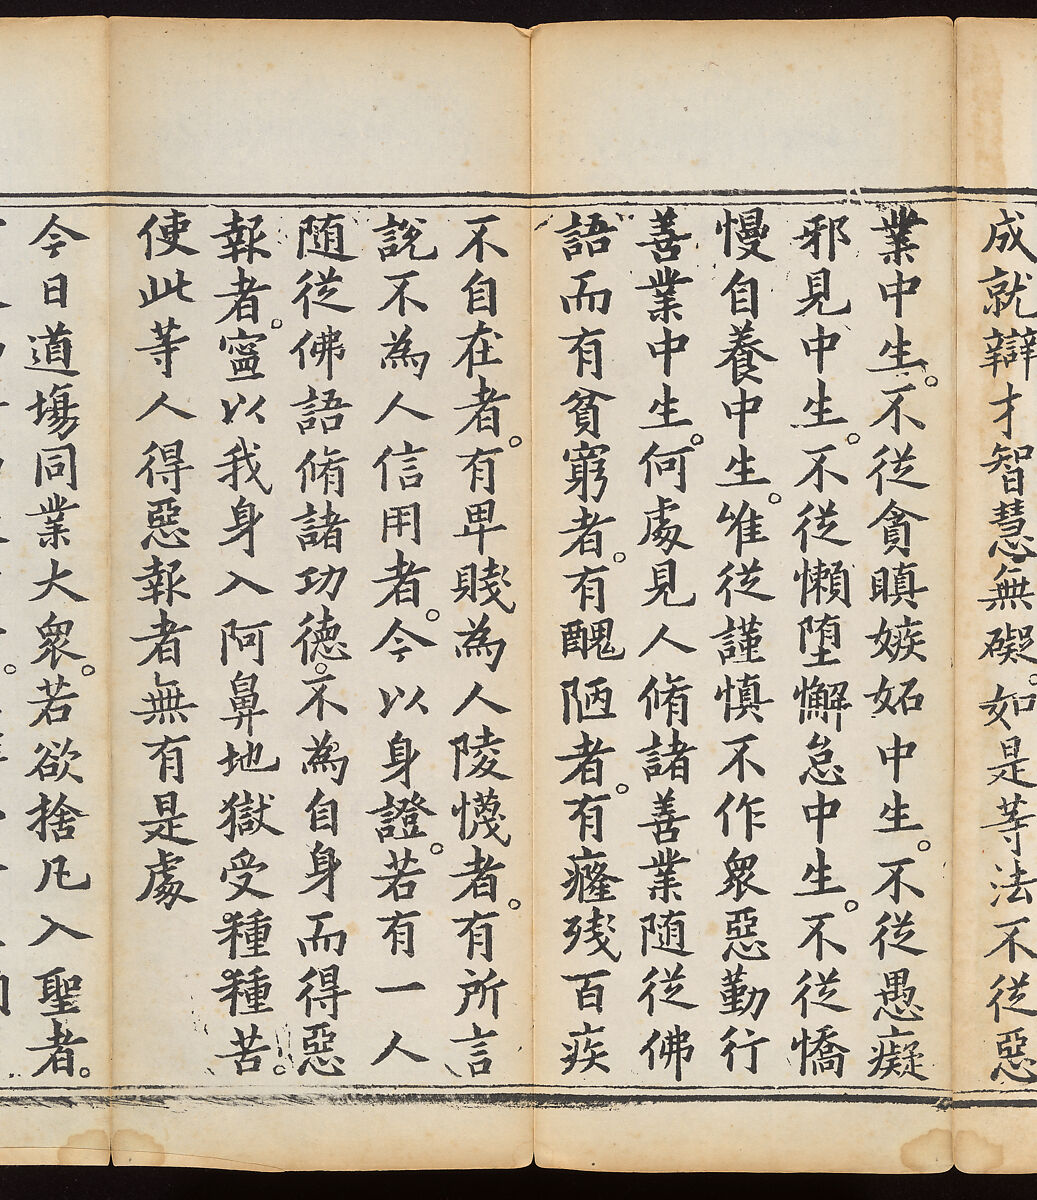 成就辯才智慧無礙。如是等法不從惡
業中生。不從貪瞋嫉妬中生。不從愚癡
邪見中生。不從懶墮懈怠中生。不從憍
慢自養中生。唯從謹慎不作衆惡勤行
善業中生。何處見人脩諸善業隨從佛
語而有貧窮者。有醜陋者。有癃殘百疾
不自在者。有卑賤為人陵懱者。有所言
說不為人信用者。今以身證。若有一人
随從佛語脩諸功德。不為自身而得惡
報者。寧以我身入阿鼻地獄受種種苦。
使此等人得惡報者無有是處
今日道塲同業大衆。若欲捨凡入聖者。